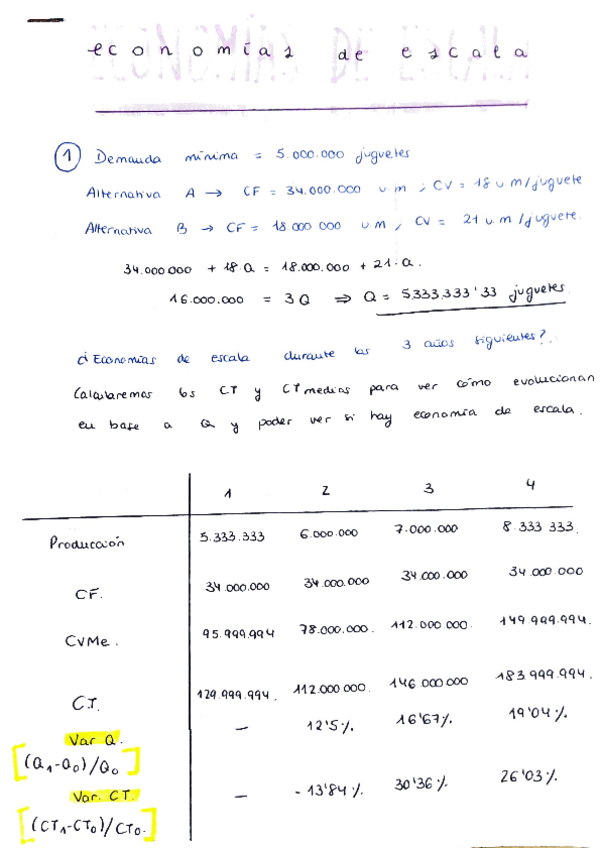 economías de escala
1 Demanda mínima = 5.000.000 juguetes
Alternativa A → CF = 34.000.000 u m ; CV = 18 u m/juguete
Alternativa B → CF = 18 000 000 u m ; CV = 21 u.m/juguete.
34.000 000 + 18.Q = 18.000.000 + 21.Q.
16.000.000 = 3Q ⇒ Q = 5.333.333'33 juguetes.
¿Economías de escala durante los 3 años siguientes?
Calcularemos los CT y CT medios para ver cómo evolucionan
en base a Q y poder ver si hay economía de escala.
1 2 3 4
Producción 5.333.333 6.000.000 7.000.000 8.333 333.
CF. 34.000.000 34.000.000 34.000.000 34.000.000
CVMe. 95.999.994 78.000.000. 112.000.000. 149.999.994.
C.T. 129.999.994. 112.000.000. 146 000 000 183.999.994.
Var Q. — 12'5% 16'67% 19'04%
[(Q1-Q0)/Q0]
Var. CT. — -13'84% 30'36% 26'03%
[(CT1-CT0)/CT0.]